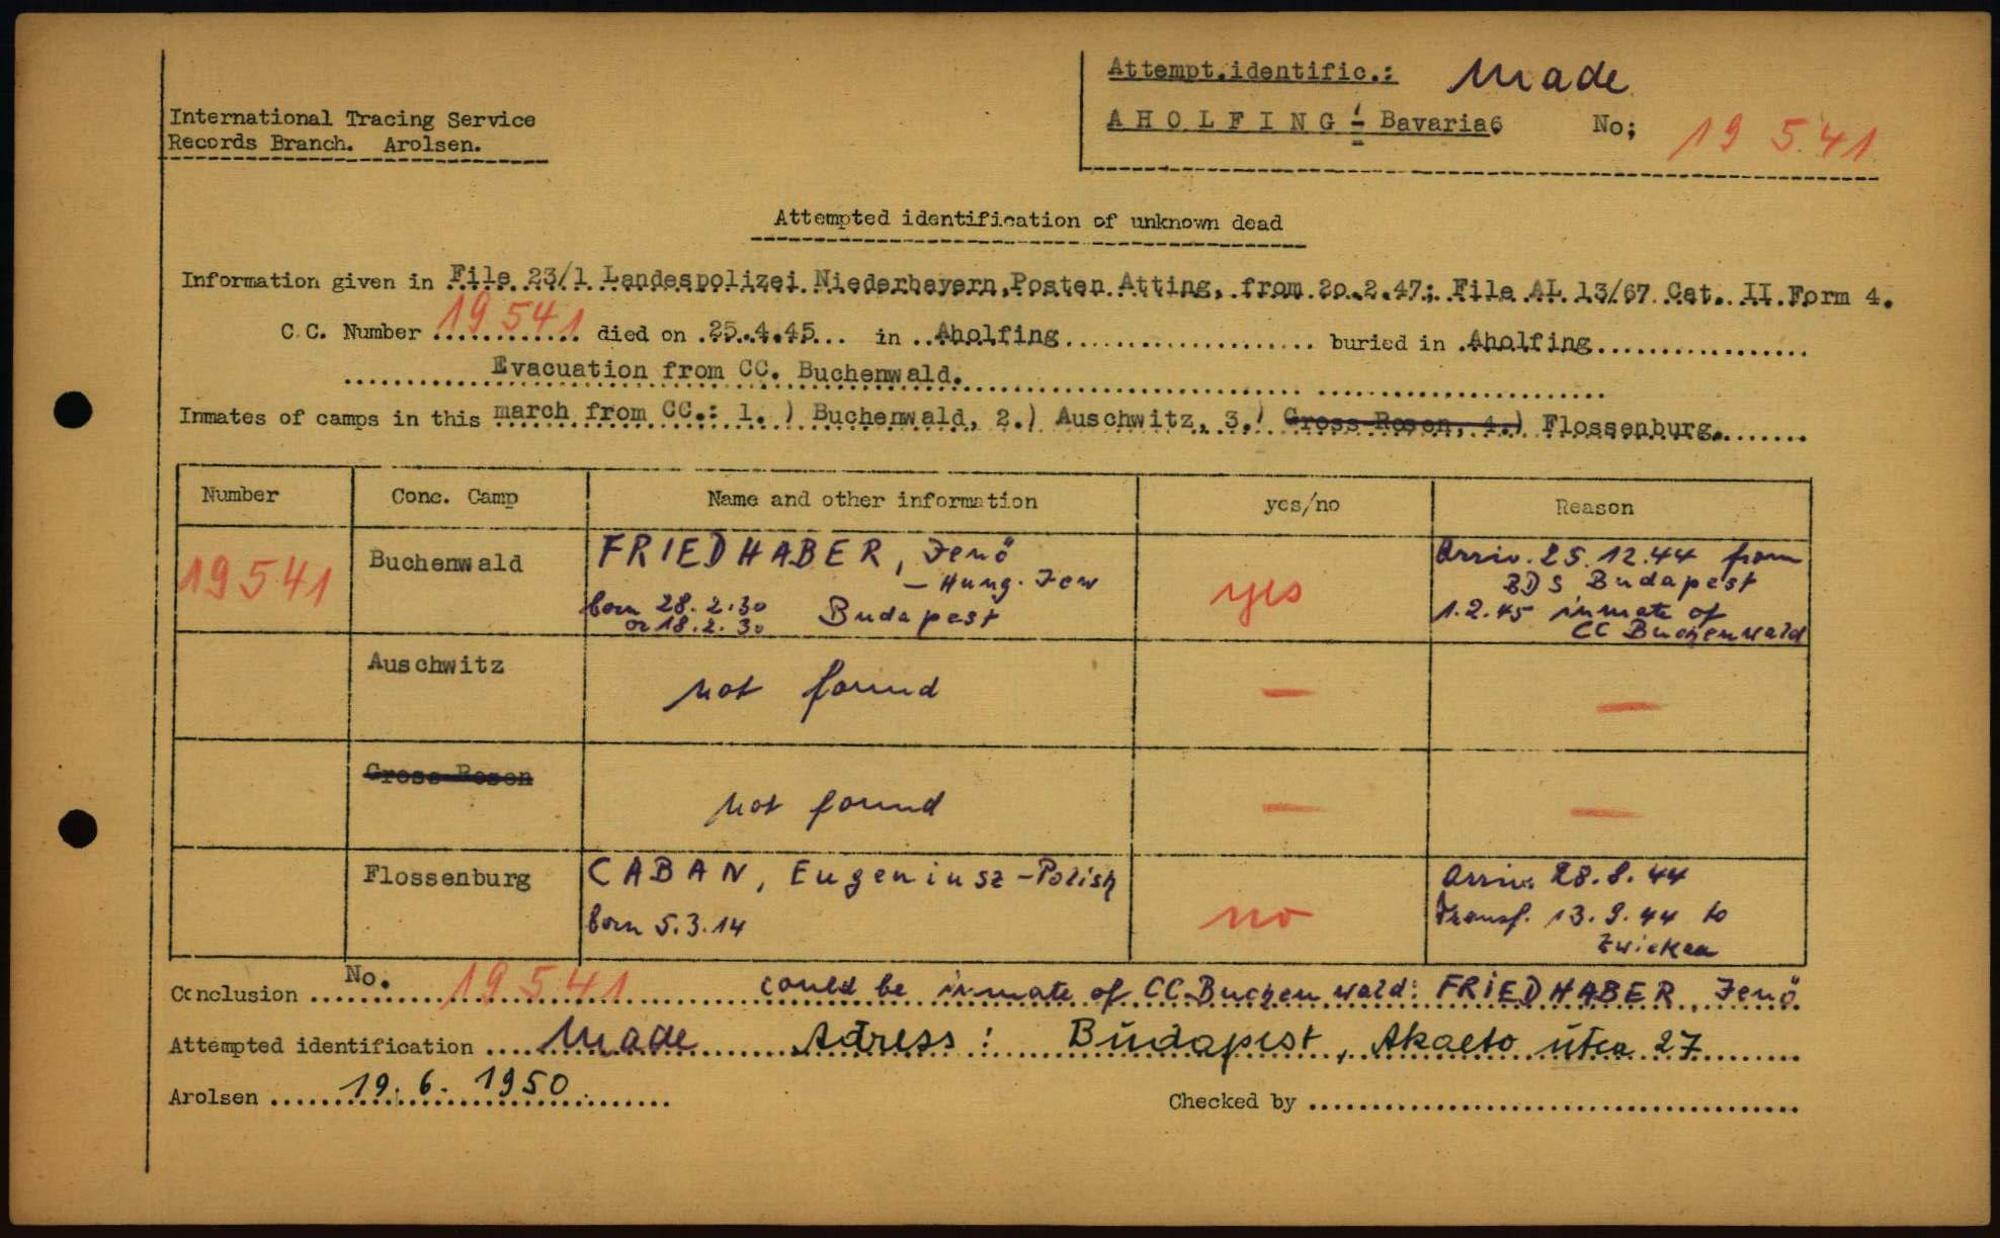 Attempt.identific.: Made
International Tracing Service
Records Branch. Arolsen.
A H O L F I N G - Bavaria6 No; 19 541
Attempted identification of unknown dead
Information given in File 23/1 Landespolizei Niederbayern, Posten Atting, from 20.2.47; File AL 13/67 Cat. II Form 4.
C.C. Number 19 541 died on 25.4.45 in Aholfing buried in Aholfing
Evacuation from CC. Buchenwald.
Inmates of camps in this march from CC.: 1.) Buchenwald, 2.) Auschwitz, 3.) Gross Rosen, 4.) Flossenburg.
Number Conc. Camp Name and other information yes/no Reason
19541 Buchenwald FRIEDHABER, Jenö - Hung. Jew born 28.2.30 or 18.2.30 Budapest yes Arriv. 25.12.44 from BDS Budapest 1.2.45 inmate of CC Buchenwald
Auschwitz not found — —
Gross Rosen not found — —
Flossenburg CABAN, Eugeniusz - Polish born 5.3.14 no Arriv. 28.8.44 Transf. 13.9.44 to Zwickau
Conclusion No. 19541 could be inmate of CC Buchenwald: FRIEDHABER, Jenö
Attempted identification Made Adress: Budapest, Akaeto útca 27
Arolsen 19. 6. 1950 Checked by